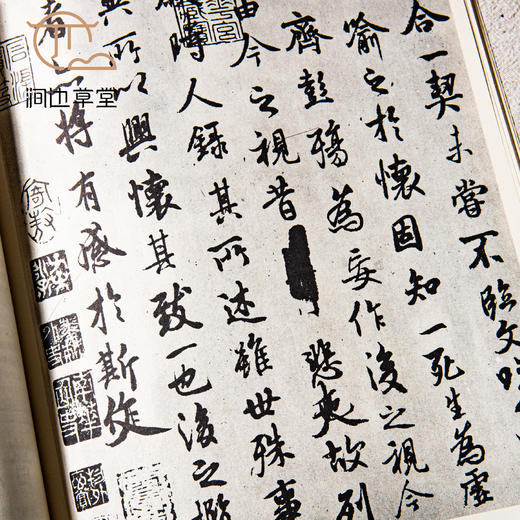 合一契未嘗不臨文
喻之於懷固知一死生為虛
齊彭殤為妄作後之視今
由今之視昔悲夫故列
時人錄其所述雖世殊事
異所以興懷其致一也後之攬
者亦將有感於斯文
涧边草堂